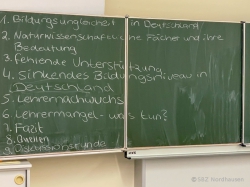 1. Bildungsungleichheit in Deutschland
2. Naturwissenschaftliche Fächer und ihre
Bedeutung
3. fehlende Unterstützung
4. sinkendes Bildungsniveau in
Deutschland
5. Lehrernachwuchs
6. Lehrermangel - was tun?
7. Fazit
8. Quellen
9. Diskussionsrunde
© SBZ Nordhausen